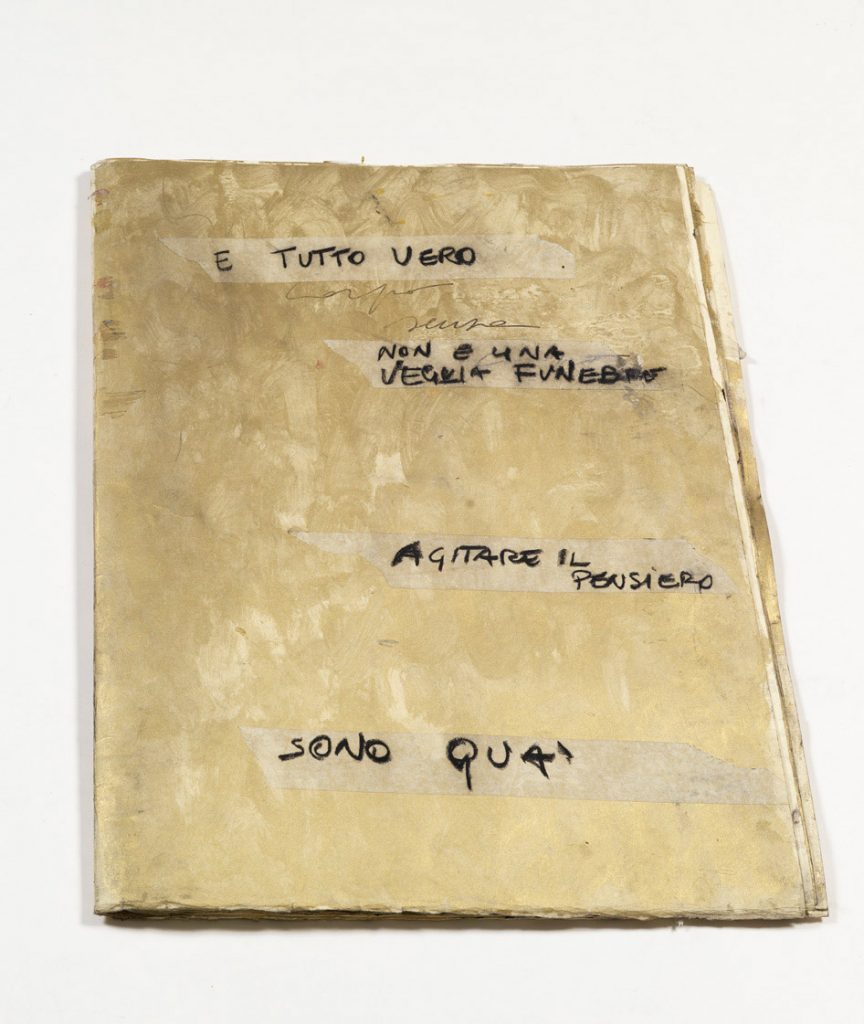 E TUTTO VERO
corpo
senza
NON E UNA
VEGLIA FUNEBRE
AGITARE IL
PENSIERO
SONO QUA'